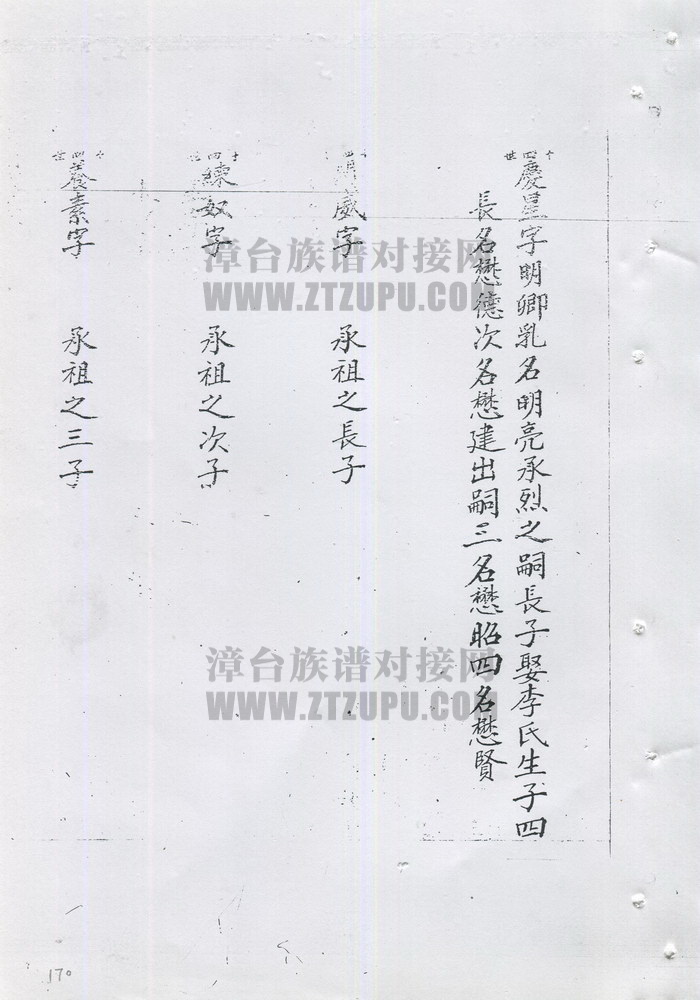 十四世
慶星字明卿乳名明亮承烈之嗣長子娶李氏生子四
長名懋德次名懋建出嗣三名懋昭四名懋賢
威字 承祖之長子
十四世
練奴字 承祖之次子
十四世
養素字 承祖之三子
漳台族谱对接网
WWW.ZTZUPU.COM
漳台族谱对接网
WWW.ZTZUPU.COM
170